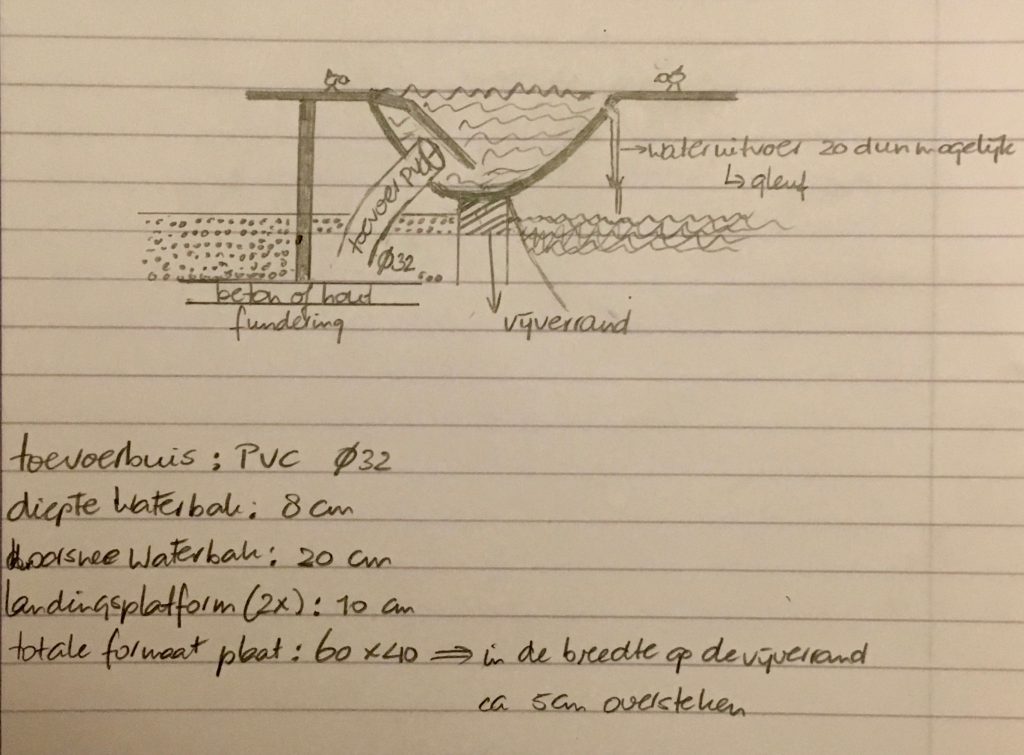 → wateruitvoer zo dun mogelijk
↳ gleuf
toevoer PVC
Ø32
beton of hout
fundering
vijverrand
toevoerbuis : PVC Ø32
diepte waterbak : 8 cm
doorsnee waterbak : 20 cm
landingsplatform (2x) : 10 cm
totale formaat plaat : 60 x 40 ⇒ in de breedte op de vijverrand
ca 5cm oversteken